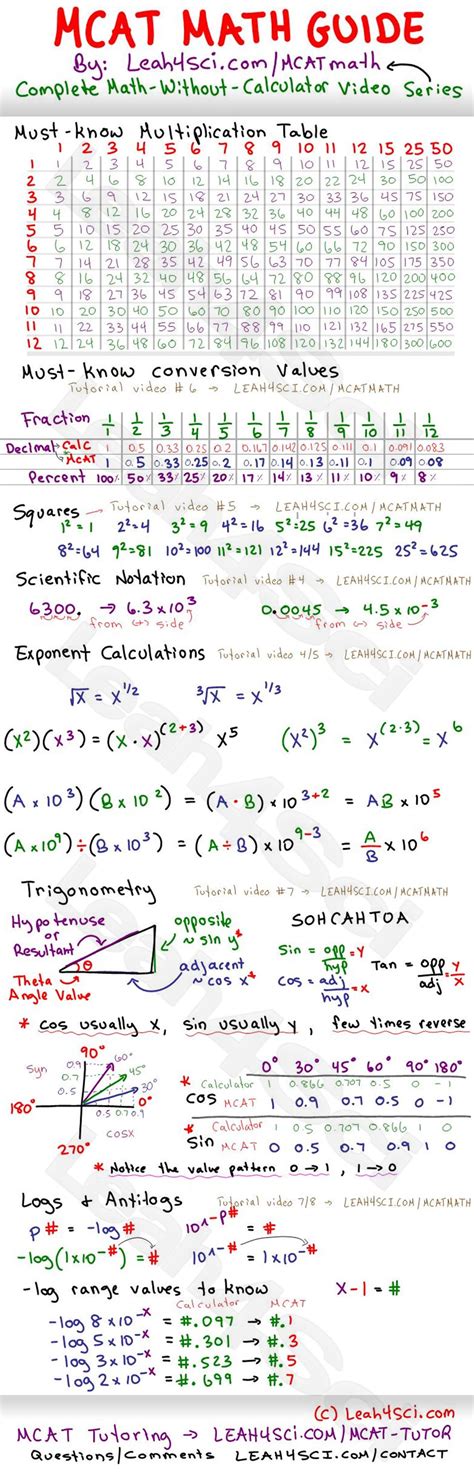 MCAT MATH GUIDE
By: Leah4sci.com/MCATmath
Complete Math-Without-Calculator Video Series
Must-know Multiplication Table
1 2 3 4 5 6 7 8 9 10 11 12 15 25 50
1 1 2 3 4 5 6 7 8 9 10 11 12 15 25 50
2 2 4 6 8 10 12 14 16 18 20 22 24 30 50 100
3 3 6 9 12 15 18 21 24 27 30 33 36 45 75 150
4 4 8 12 16 20 24 28 32 36 40 44 48 60 100 200
5 5 10 15 20 25 30 35 40 45 50 55 60 75 125 250
6 6 12 18 24 30 36 42 48 54 60 66 72 90 150 300
7 7 14 21 28 35 42 49 56 63 70 77 84 105 175 350
8 8 16 24 32 40 48 56 64 72 80 88 96 120 200 400
9 9 18 27 36 45 54 63 72 81 90 99 108 135 225 425
10 10 20 30 40 50 60 70 80 90 100 110 120 150 250 500
11 11 22 33 44 55 66 77 88 99 110 121 132 165 275 550
12 12 24 36 48 60 72 84 96 108 120 132 144 180 300 600
Must-know conversion values
Tutorial video #6 → LEAH4SCI.COM/MCATMATH
Fraction 1/1 1/2 1/3 1/4 1/5 1/6 1/7 1/8 1/9 1/10 1/11 1/12
Decimal Calc 1 0.5 0.33 0.25 0.2 0.167 0.142 0.125 0.111 0.1 0.091 0.083
MCAT 1 0.5 0.33 0.25 0.2 0.17 0.14 0.13 0.11 0.1 0.09 0.08
Percent 100% 50% 33% 25% 20% 17% 14% 13% 11% 10% 9% 8%
Squares - Tutorial video #5 → LEAH4SCI.COM/MCATMATH
1²=1 2²=4 3²=9 4²=16 5²=25 6²=36 7²=49
8²=64 9²=81 10²=100 11²=121 12²=144 15²=225 25²=625
Scientific Notation Tutorial video #4 → LEAH4SCI.COM/MCATMATH
6300. → 6.3 x 10³ 0.0045 → 4.5 x 10⁻³
from (+) side from (-) side
Exponent Calculations Tutorial video 4/5 → LEAH4SCI.COM/MCATMATH
√x = x^1/2 ³√x = x^1/3
(x²)(x³) = (x·x)^(2+3) x⁵ (x²)³ = x^(2·3) = x⁶
(A x 10³)(B x 10²) = (A·B) x 10³⁺² = AB x 10⁵
(A x 10⁹)÷(B x 10³) = (A÷B) x 10⁹⁻³ = A/B x 10⁶
Trigonometry Tutorial video #7 → LEAH4SCI.COM/MCATMATH
Hypotenuse or Resultant
opposite ~ sin y*
adjacent ~ cos x*
θ
Theta Angle Value
SOHCAHTOA
Sin = opp/hyp = Y
Cos = adj/hyp = X
Tan = opp/adj = Y/X
* cos usually x, sin usually y, few times reverse
90°
Syn 0.9 0.7 0.5
60°
45°
30°
0°
180°
0.5 0.7 0.9
cosx
270°
0° 30° 45° 60° 90° 180°
* Calculator 1 0.866 0.707 0.5 0 -1
cos MCAT 1 0.9 0.7 0.5 0 -1
* Calculator 0 0.5 0.707 0.866 1 0
Sin MCAT 0 0.5 0.7 0.9 1 0
* Notice the value pattern 0→1, 1→0
Logs & Antilogs Tutorial video 7/8 → LEAH4SCI.COM/MCATMATH
p# = -log# 10^-p# = #
-log(1x10^-#) = # 10^-# = 1x10^-#
-log range values to know X-1 = #
Calculator MCAT
-log 8 x10^-x = #.097 → #.1
-log 5 x10^-x = #.301 → #.3
-log 3 x10^-x = #.523 → #.5
-log 2 x10^-x = #.699 → #.7
(c) Leah4sci.com
MCAT Tutoring → LEAH4SCI.COM/MCAT-TUTOR
Questions/Comments LEAH4SCI.COM/CONTACT
Leah4sci